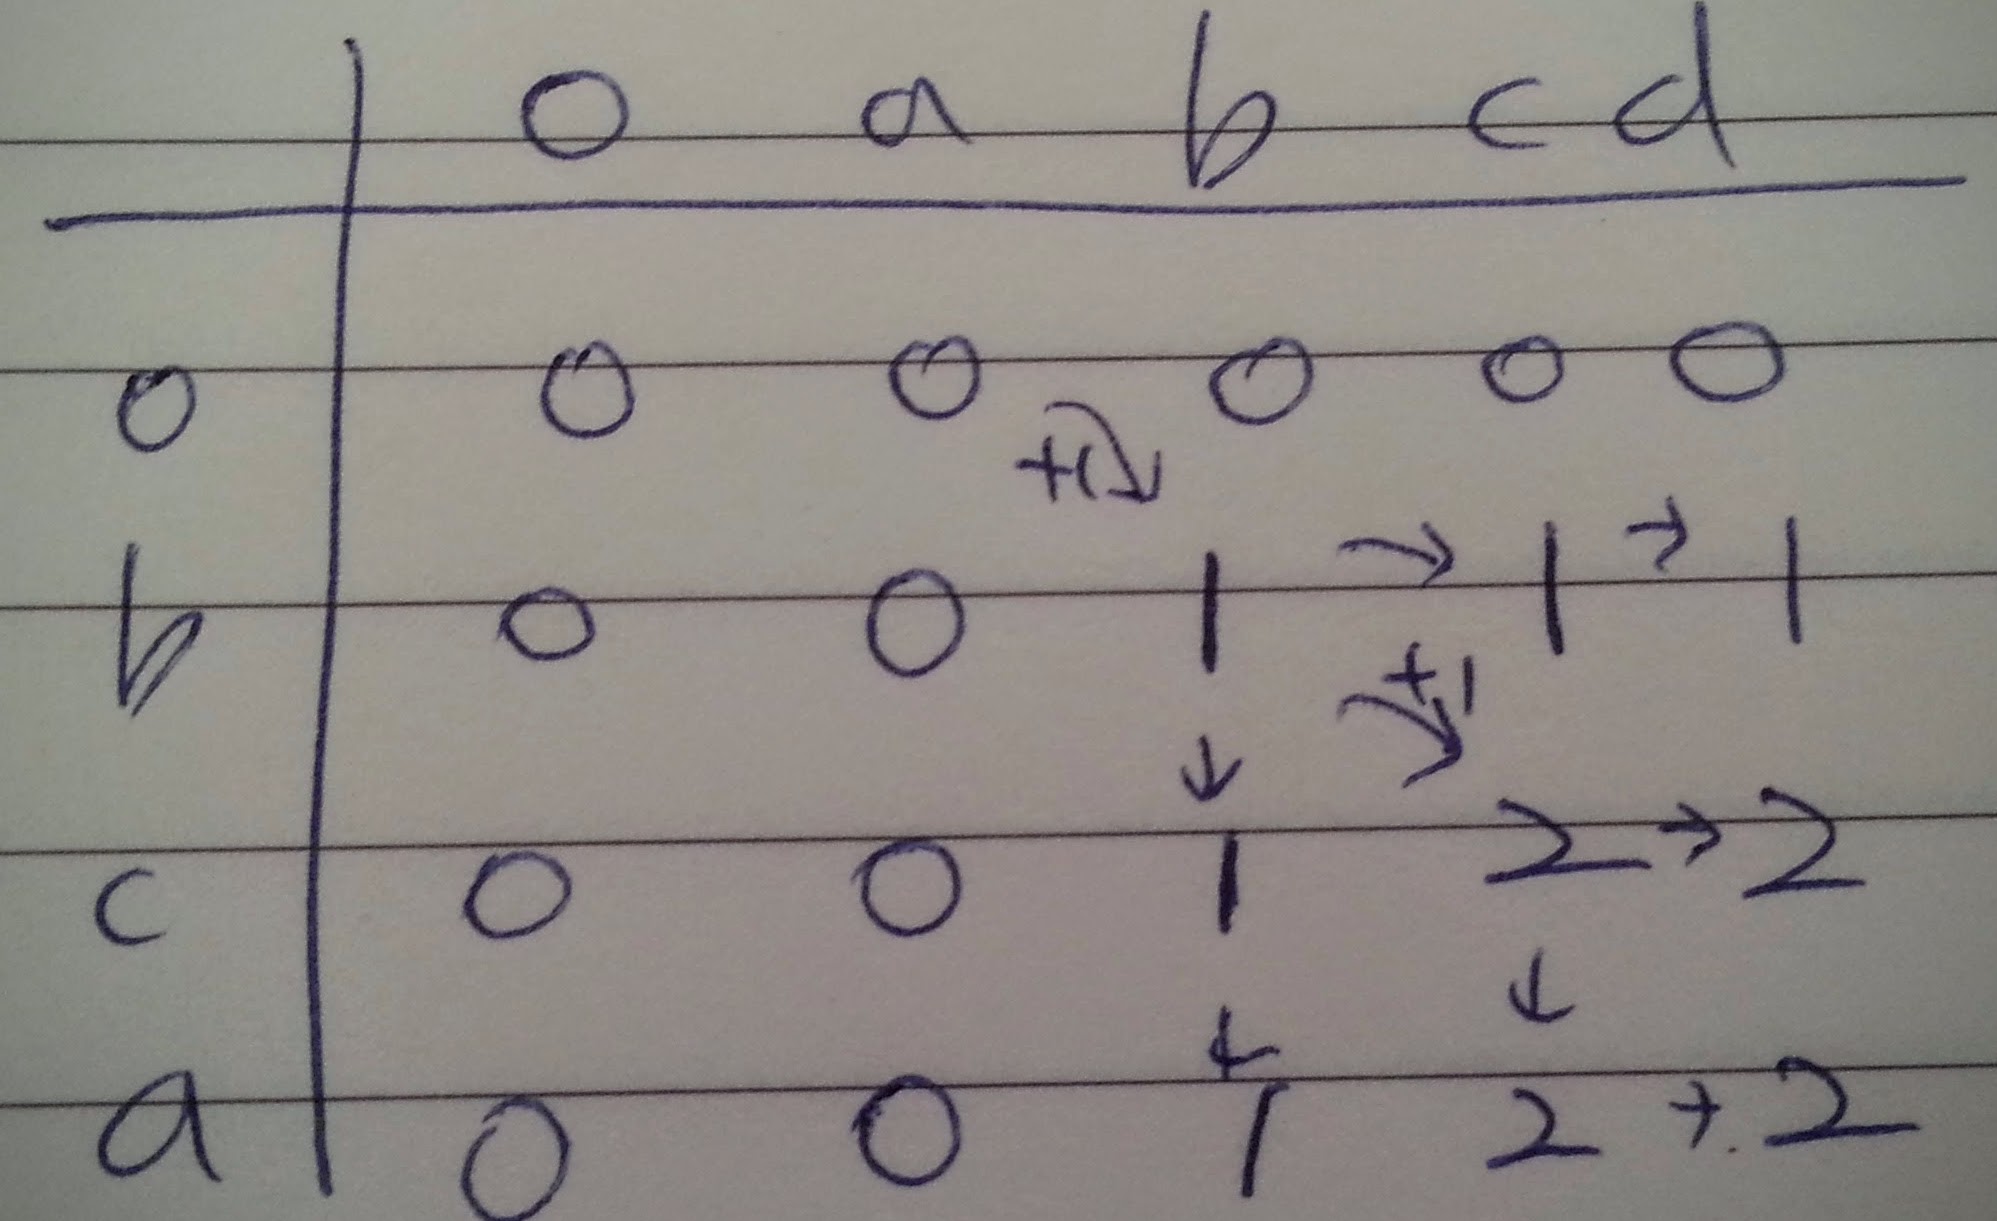 0 a b c d
0 0 0 0 0 0
+1
b 0 0 1 → 1 → 1
↓ +1
c 0 0 1 2 → 2
↓ ↓
a 0 0 1 2 → 2